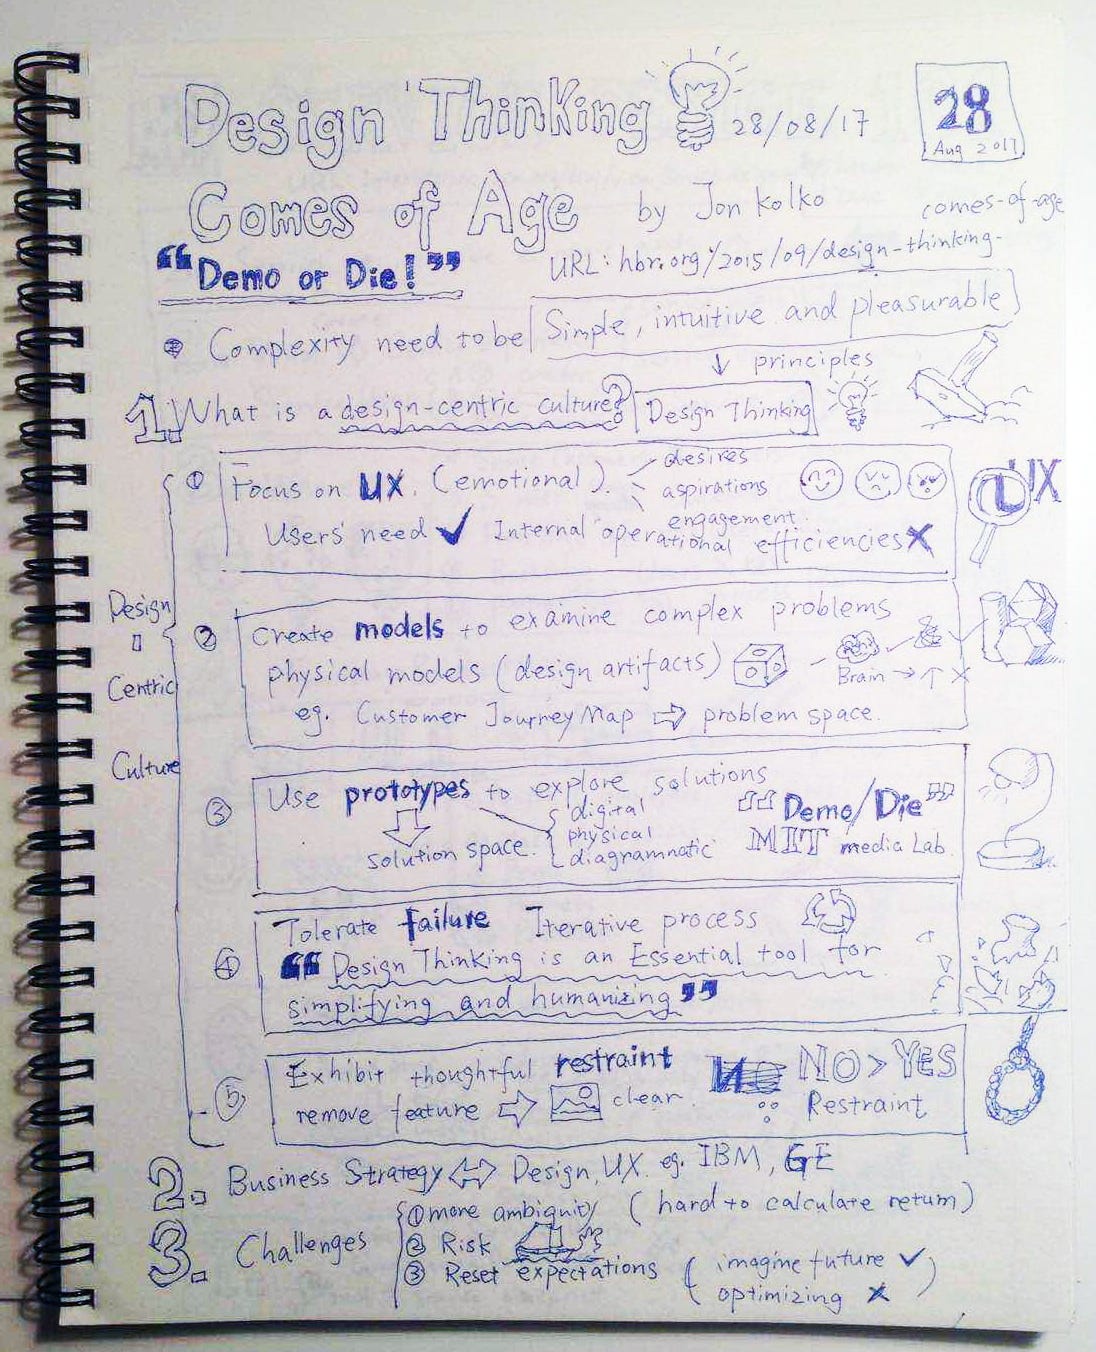 Design Thinking 28/08/17
28
Aug 2017
Comes of Age by Jon Kolko
"Demo or Die!"
URL: hbr.org/2015/09/design-thinking-
comes-of-age
Complexity need to be Simple, intuitive and pleasurable
↓ principles
1. What is a design-centric culture? Design Thinking
Design
Centric
Culture
① Focus on UX. (emotional).
desires
aspirations
engagement
UX
Users' need ✓ Internal operational efficiencies ✗
② Create models to examine complex problems
physical models (design artifacts)
Brain → ↑ ✗
eg. Customer Journey Map ⇨ problem space.
③ Use prototypes to explore solutions
solution space.
digital
physical
diagramnatic
"Demo/Die"
MIT media Lab.
④ Tolerate failure Iterative process
"Design Thinking is an Essential tool for
simplifying and humanizing"
⑤ Exhibit thoughtful restraint NO > YES
remove feature ⇨ clear. Restraint
2. Business Strategy ⇔ Design, UX. eg. IBM, GE
3. Challenges
① more ambiguity (hard to calculate return)
② Risk
③ Reset expectations (imagine future ✓
optimizing ✗)